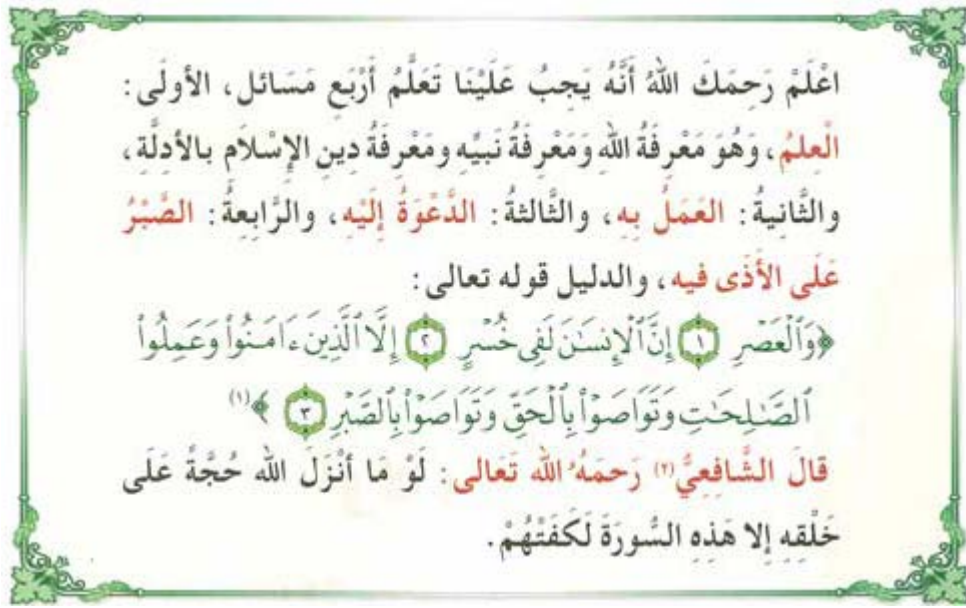 اعْلَمْ رَحِمَكَ اللهُ أَنَّهُ يَجِبُ عَلَيْنَا تَعَلُّمُ أَرْبَعِ مَسَائل، الأولَى:
الْعِلمُ، وَهُوَ مَعْرِفَةُ اللهِ وَمَعْرِفَةُ نَبيِّهِ ومَعْرِفَةُ دِينِ الإِسْلَامِ بالأدِلَّةِ،
والثَّانِيةُ: العَمَلُ بِهِ، والثَّالثةُ: الدَّعْوَةُ إِلَيْهِ، والرَّابِعةُ: الصَّبْرُ
عَلَى الأَذَى فيه، والدليل قوله تعالى:
﴿وَٱلْعَصْرِ ١ إِنَّ ٱلْإِنسَٰنَ لَفِى خُسْرٍ ٢ إِلَّا ٱلَّذِينَ ءَامَنُوا۟ وَعَمِلُوا۟
ٱلصَّٰلِحَٰتِ وَتَوَاصَوْا۟ بِٱلْحَقِّ وَتَوَاصَوْا۟ بِٱلصَّبْرِ ٣ ﴾(١)
قالَ الشَّافِعِيُّ(٢) رَحِمَهُ الله تَعَالى: لَوْ مَا أَنْزَلَ الله حُجَّةً عَلَى
خَلْقِهِ إلا هَذِهِ السُّورَةَ لَكَفَتْهُمْ.